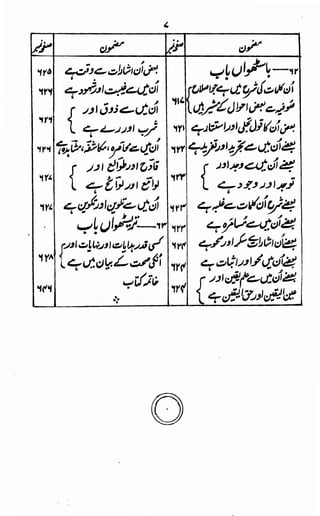 ۷
مضمون صفحہ نمبر
۶۲ — باسٹھواں باب
اُن کلمات کی شرح میں ہے جو اصطلاح
صوفیہ سے بعض احوال کے مشیر ہیں ۶۱۷
بعض اُن کا قول تجلی اور استتار ہے ۶۲۱
بعضے اُن میں سے تجرید اور تفرید ہے ۶۲۲
بعضے اُن میں سے وجد اور
تواجد اور وجود ہے ۶۲۲
بعضے شرح اُن کلمات سے غلبہ ہے ۶۲۳
بعضے اُن میں سے مسامرہ ہے ۶۲۳
بعضے اُن اشارات سے سکر اور صحو ہے ۶۲۴
بعضے اُن میں محو اور اثبات ہے ۶۲۴
بعضے اُن میں سے علم الیقین اور
عین الیقین اور حق الیقین ہے ۶۲۴
مضمون صفحہ نمبر
بعض اُن اشارات سے وقت ہے ۶۲۵
اُن میں سے غیبت اور شہود ہے ۶۲۶
اُن میں سے ذوق اور
شرب اور رے ہے ۶۲۶
اُن میں سے محاضرہ، مکاشفہ، مشاہدہ ہے ۶۲۶
اُن میں سے طوارق اور
بوادی اور ہے ۶۲۷
اُن میں سے تلوین اور تمکین ہے ۶۲۷
۶۳ — ترسٹھواں باب
کسی قدر بدایات اور نہایات اور
اُنکی صحت کے بیان میں ہے ۶۲۸
خاتمہ کتاب ۶۴۶